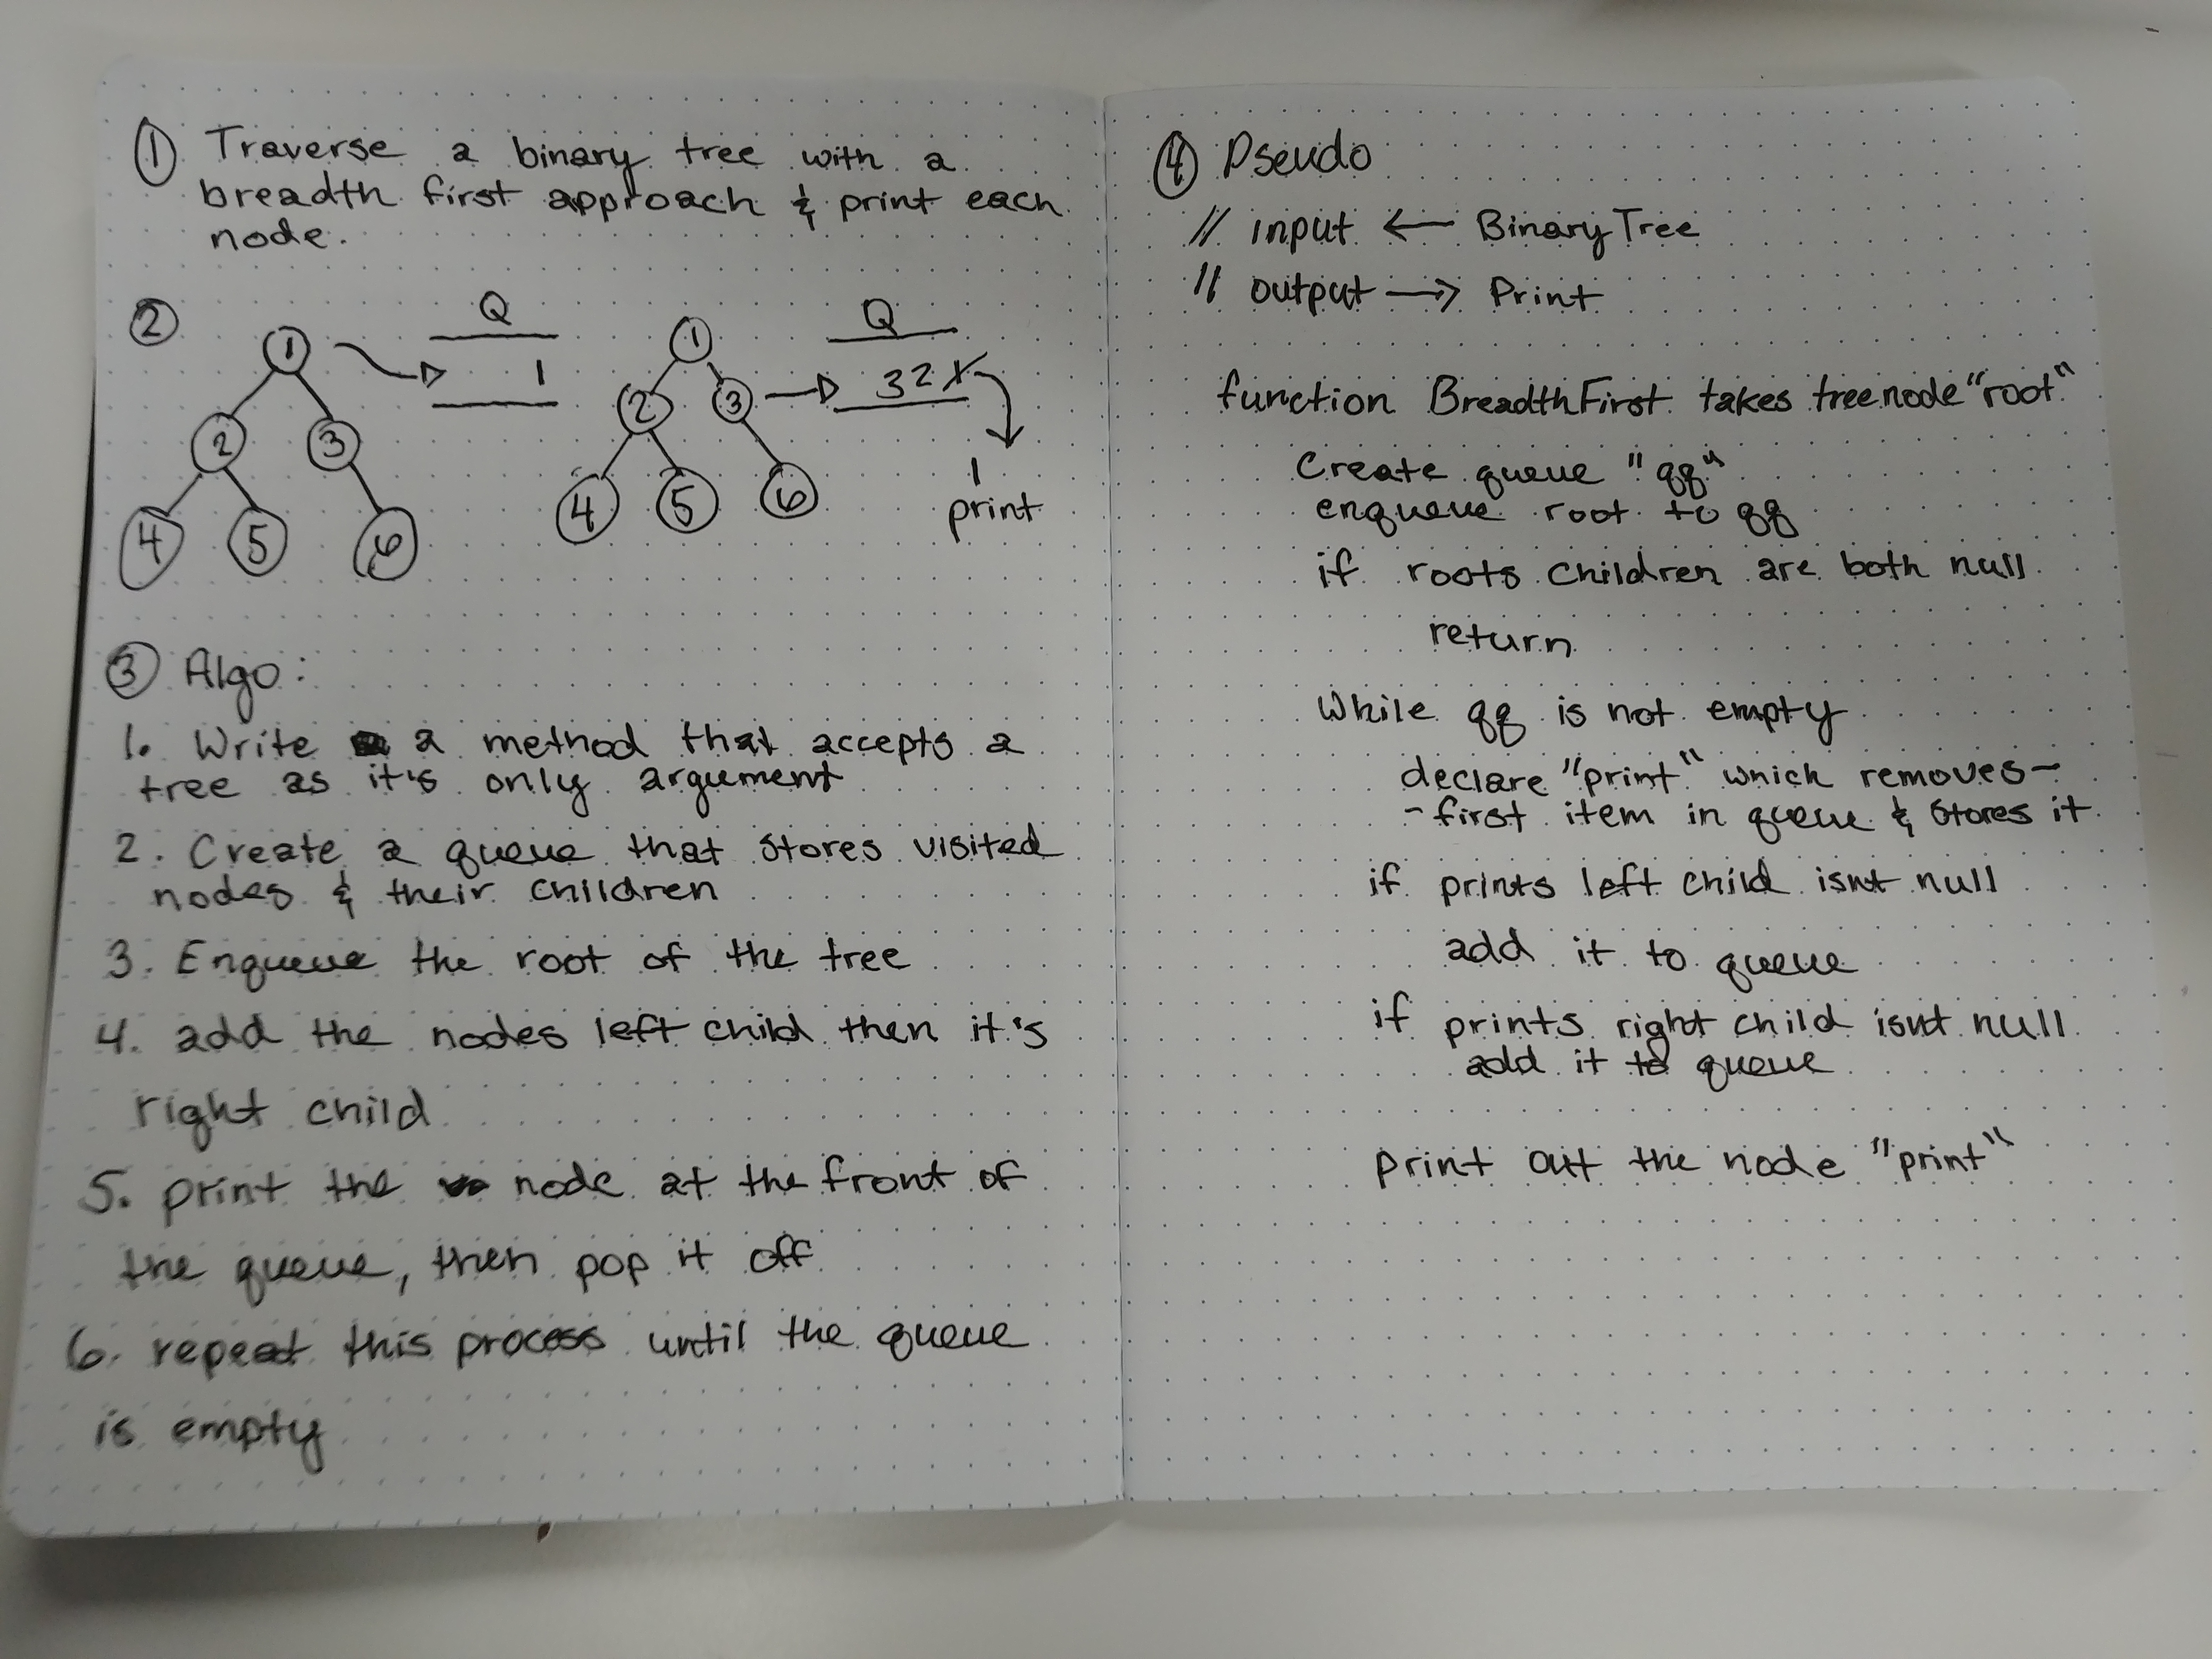 ① Traverse a binary tree with a
breadth first approach & print each
node.
②
1
2 3
4 5 6
Q
1
1
2 3
4 5 6
Q
3 2 1
1
print
③ Algo:
1. Write a method that accepts a
tree as it's only argument
2. Create a queue that stores visited
nodes & their children
3. Enqueue the root of the tree
4. add the nodes left child then it's
right child
5. print the node at the front of
the queue, then pop it off
6. repeat this process until the queue
is empty
④ Pseudo
// input ← BinaryTree
// output → Print
function BreadthFirst takes treenode "root"
Create queue "qq"
enqueue root to qq
if roots children are both null
return
While qq is not empty
declare "print" which removes-
-first item in queue & stores it
if prints left child isnt null
add it to queue
if prints right child isnt null
add it to queue
print out the node "print"